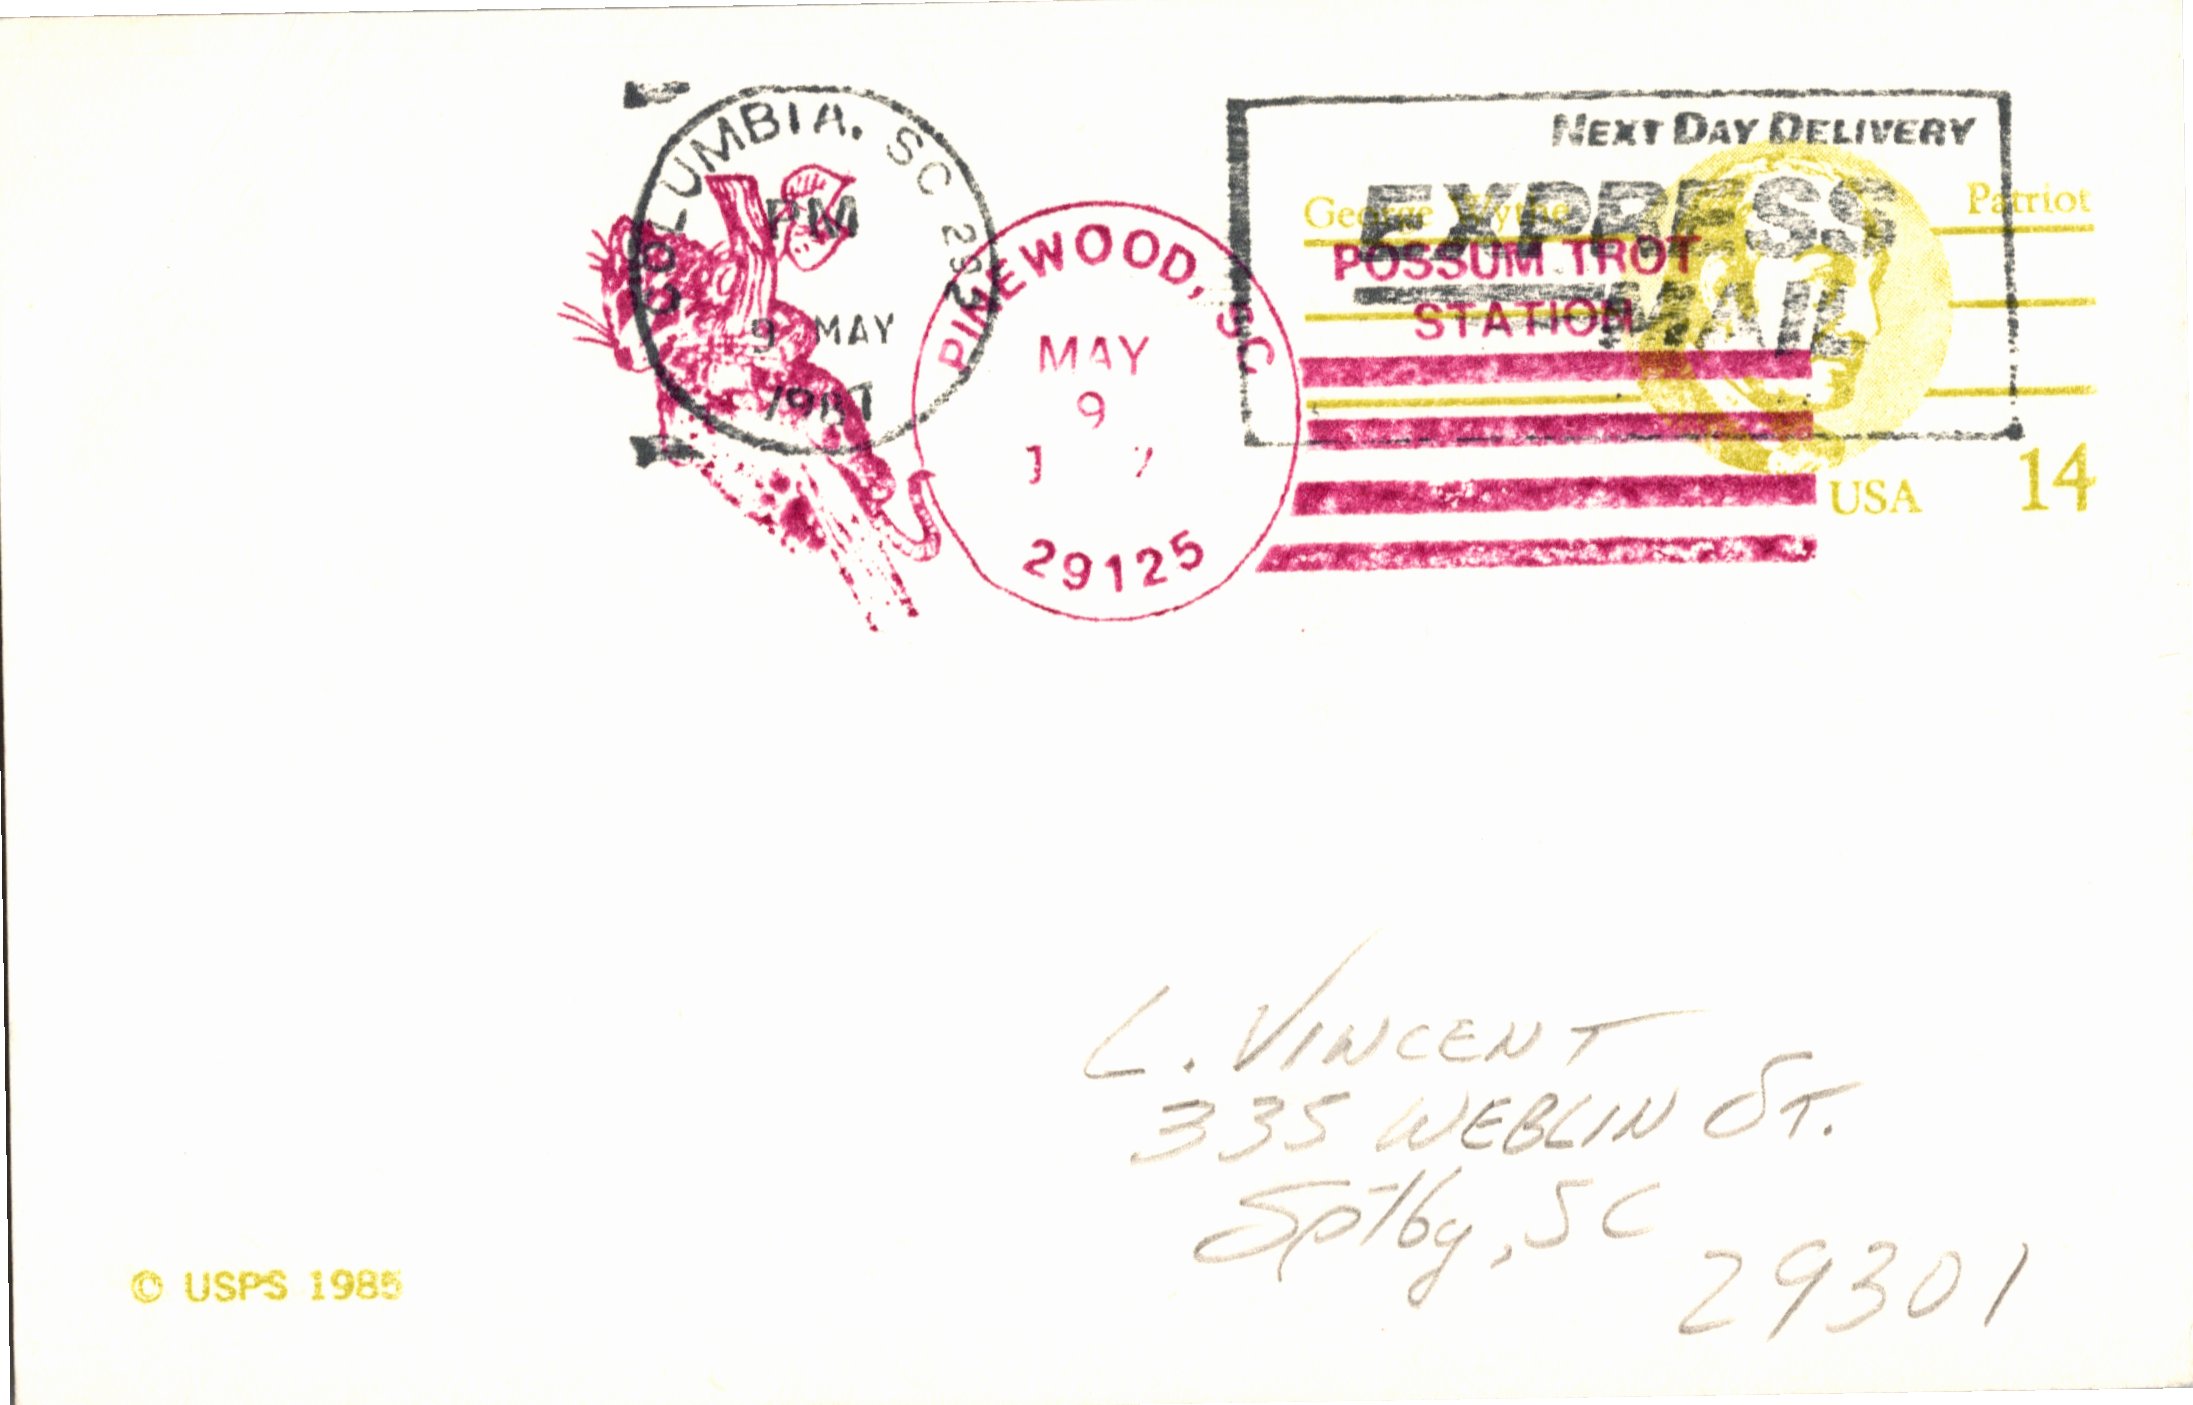 COLUMBIA, SC 292
PM
9 MAY
1987
PINEWOOD, SC
MAY
9
1 7
29125
NEXT DAY DELIVERY
EXPRESS
MAIL
George Wythe Patriot
POSSUM TROT
STATION
USA 14
L. VINCENT
335 WEBLIN ST.
Sptby, SC
29301
© USPS 1985